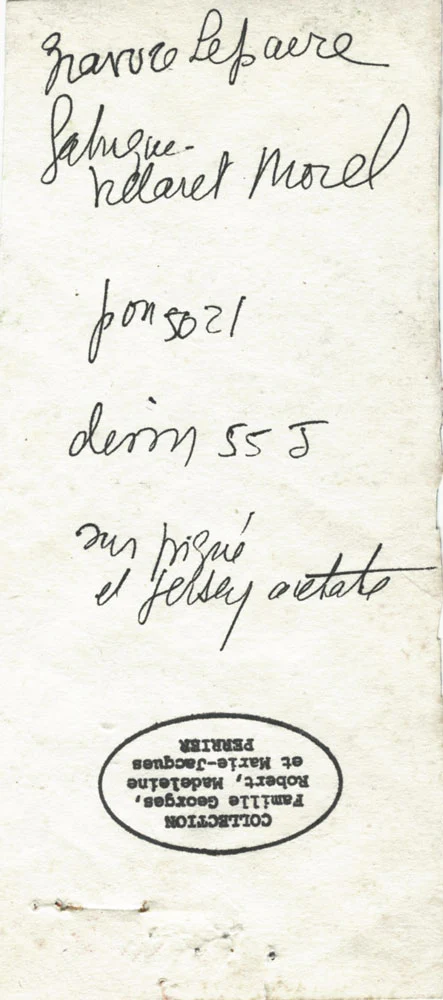 Gravure Lefaure
fabrique
Morel
pon 5021
dessin 55 J
sur piqué
et Jersey acétate
COLLECTION
Famille Georges,
Robert, Madeleine
et Marie-Jacques
PERRIER